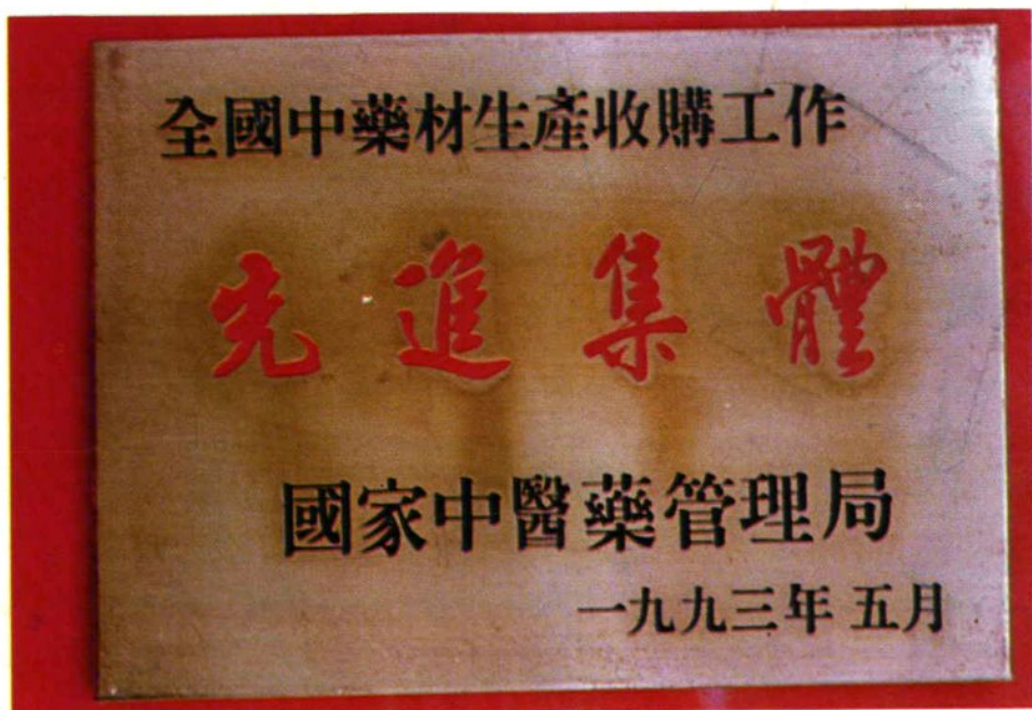 全國中藥材生產收購工作
先進集體
國家中醫藥管理局
一九九三年 五月